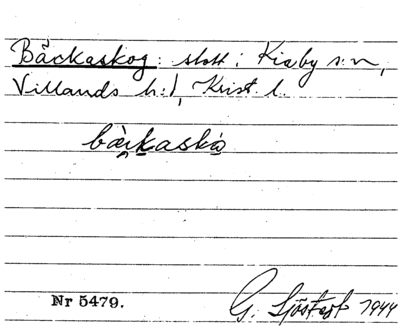 Bäckaskog: slott i Kiaby s:n,
Villands h:d, Krist. l.
bäkaskó
Nr 5479.
G. Sjöstedt 1944